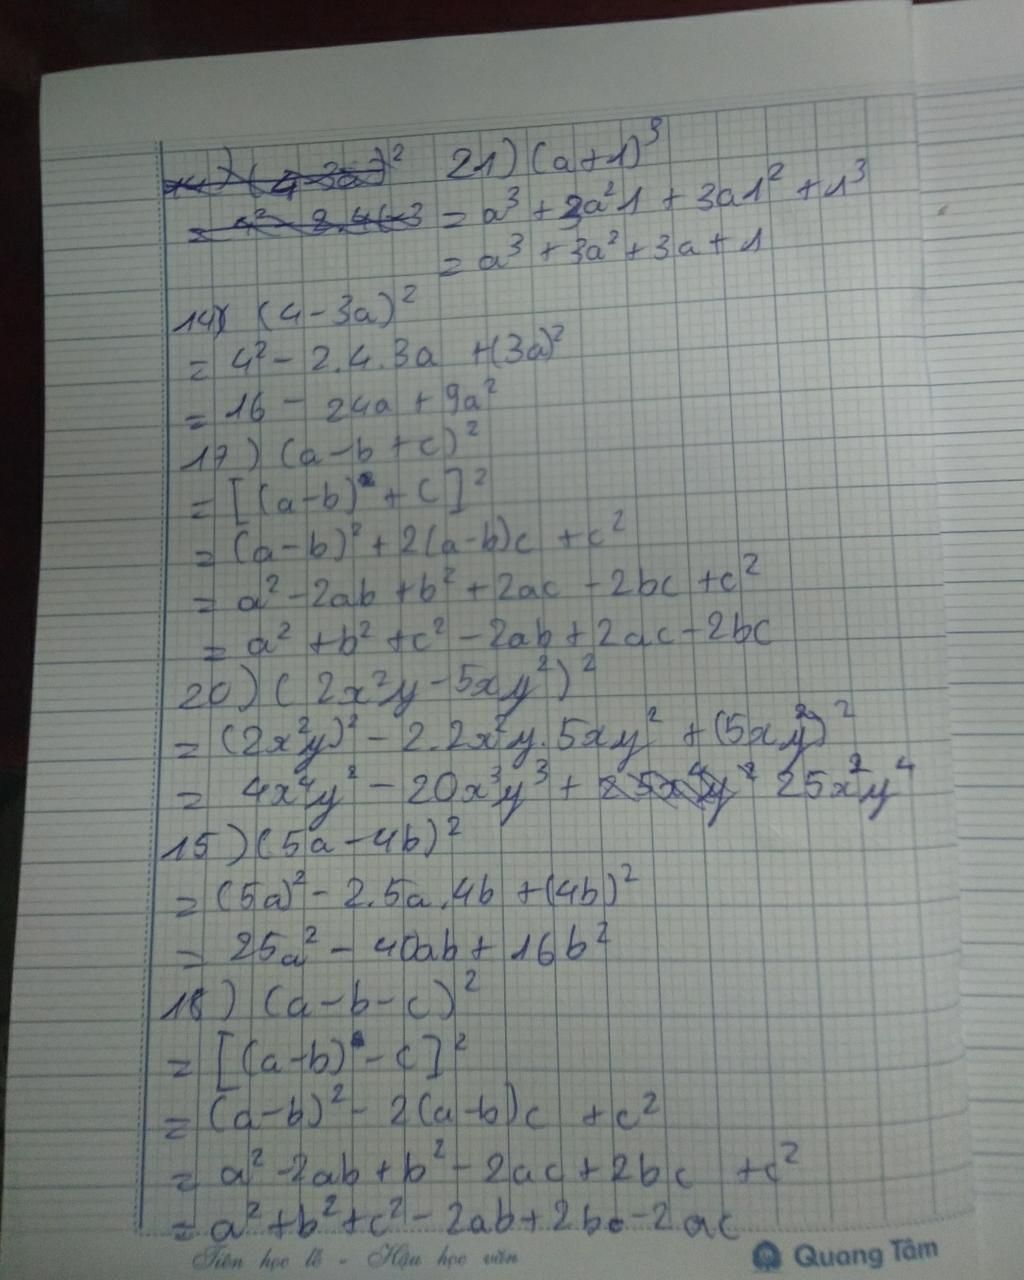 21) (a+1)³
= a³ + 3a²1 + 3a1² + 1³
= a³ + 3a² + 3a + 1
14) (4-3a)²
= 4² - 2.4.3a + (3a)²
= 16 - 24a + 9a²
17) (a-b+c)²
= [(a-b) + c]²
= (a-b)² + 2(a-b)c + c²
= a² - 2ab + b² + 2ac - 2bc + c²
= a² + b² + c² - 2ab + 2ac - 2bc
20) (2x²y - 5xy²)²
= (2x²y)² - 2.2x²y.5xy² + (5xy²)²
= 4x⁴y² - 20x³y³ + 25x²y⁴
15) (5a-4b)²
= (5a)² - 2.5a.4b + (4b)²
= 25a² - 40ab + 16b²
18) (a-b-c)²
= [(a-b) - c]²
= (a-b)² - 2(a-b)c + c²
= a² - 2ab + b² - 2ac + 2bc + c²
= a² + b² + c² - 2ab + 2bc - 2ac
Tiên học lễ - Hậu học văn
Quang Tâm